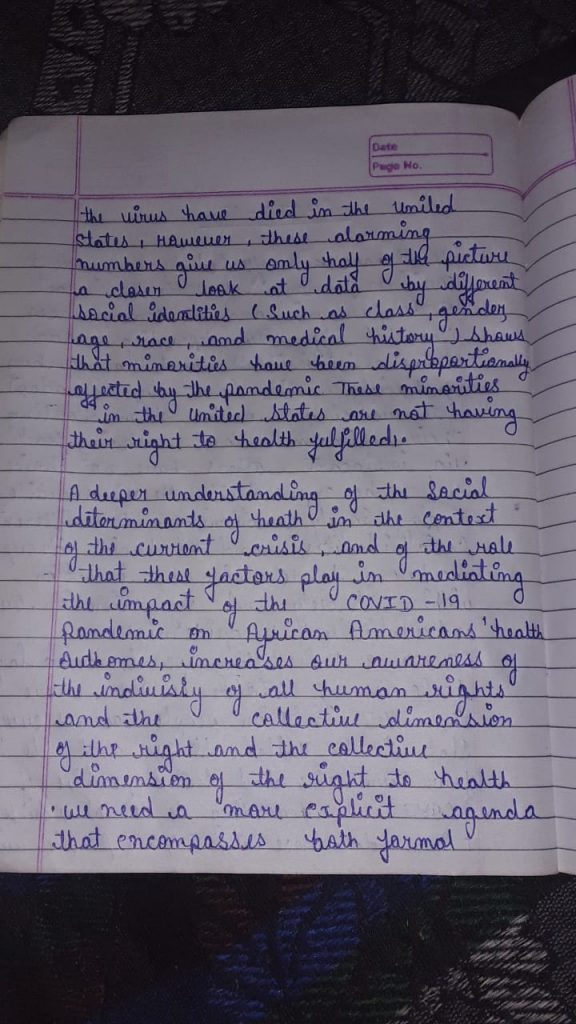 Date
Page No.
the virus have died in the united
states, However, these alarming
numbers give us only half of the picture
a closer look at data by different
social identities (Such as class, gender,
age, race, and medical history) shows
that minorities have been disproportionally
affected by the pandemic These minorities
in the united states are not having
their right to health fulfilled.
A deeper understanding of the Social
determinants of heath in the context
of the current crisis, and of the role
that these factors play in mediating
the impact of the COVID-19
Pandemic on African Americans' health
outcomes, increases our awareness of
the indivisity of all human rights
and the collective dimension
of the right and the collective
dimension of the right to health
. we need a more explicit agenda
that encompasses both formal